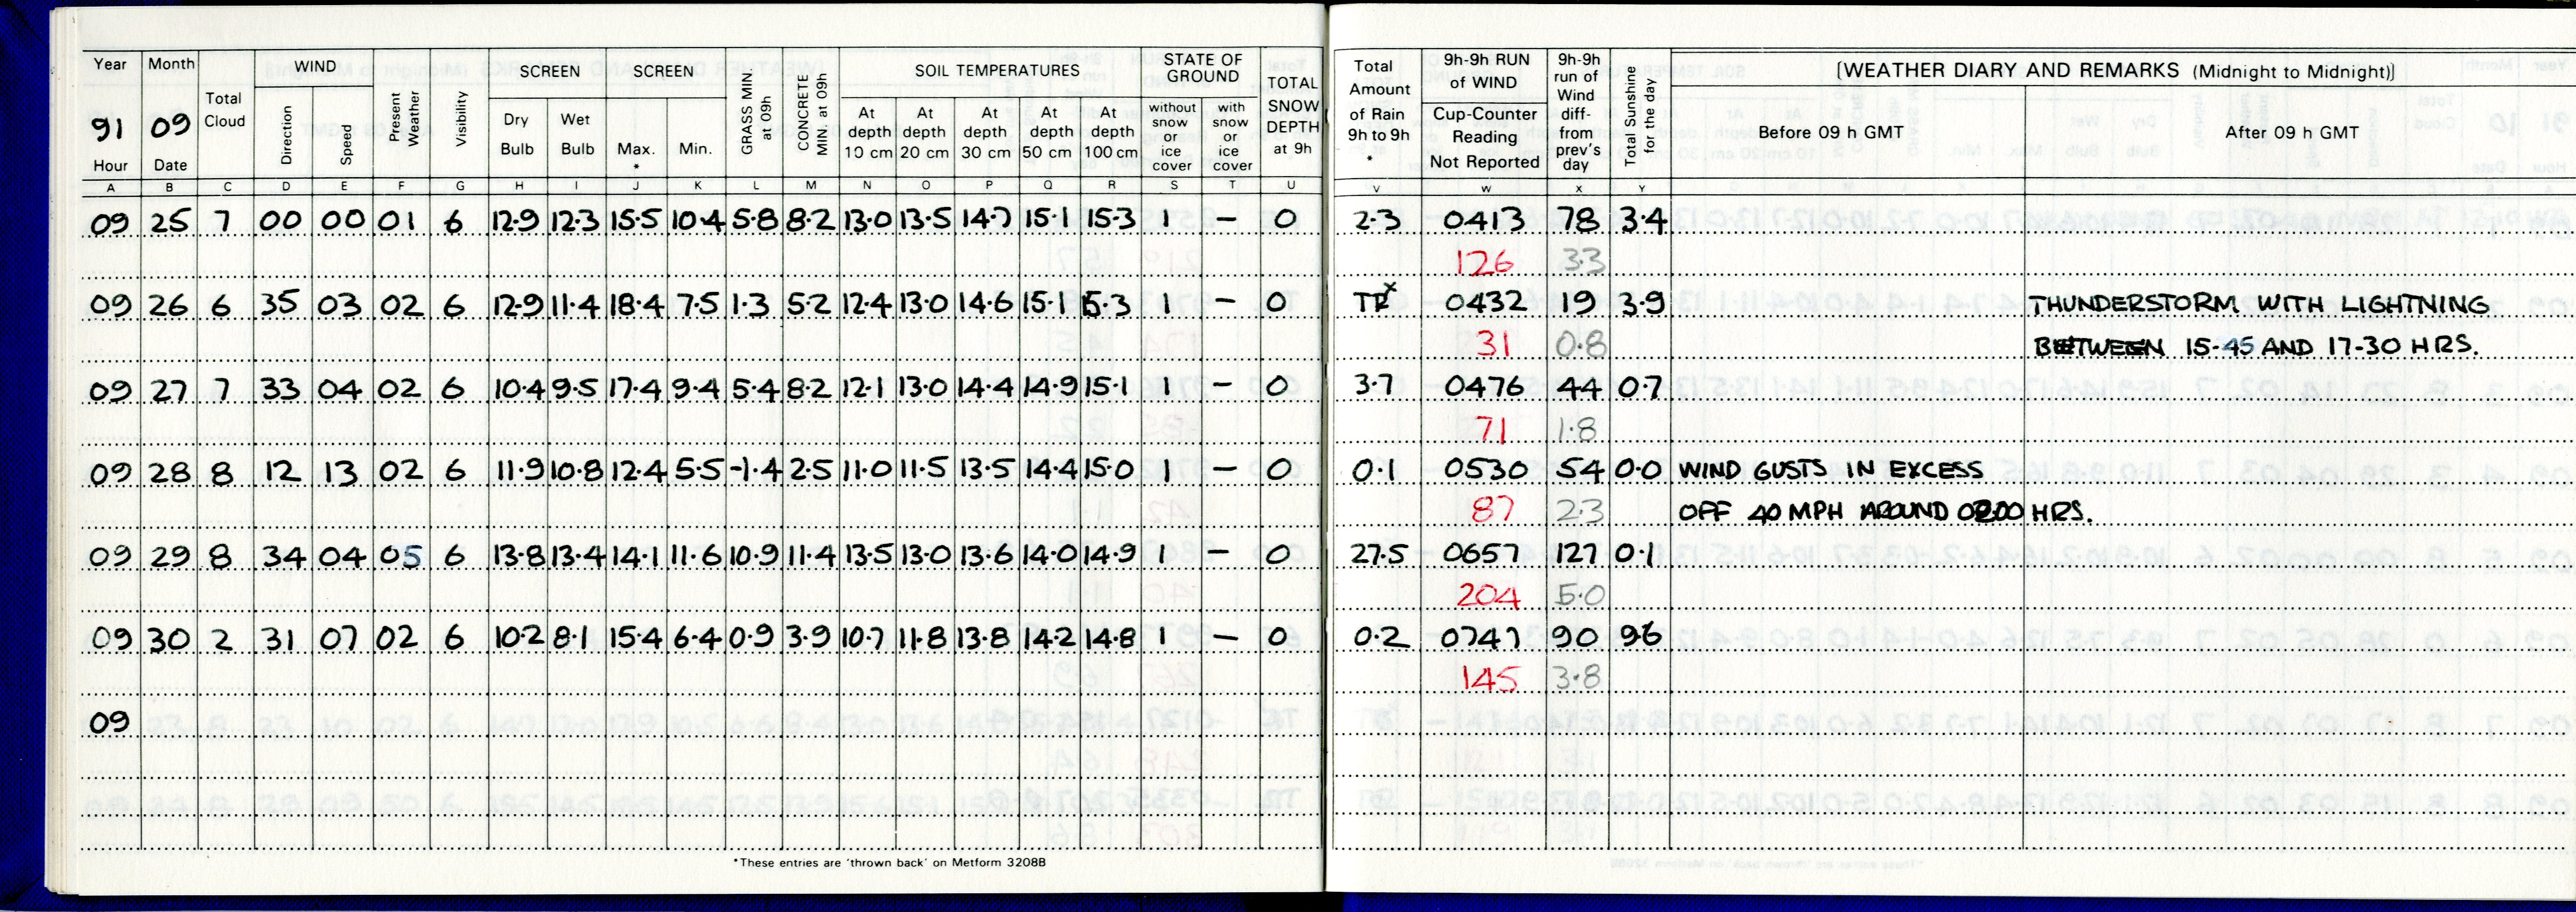 Year Month WIND SCREEN SCREEN SOIL TEMPERATURES STATE OF GROUND
91 09 Total Cloud Direction Speed Present Weather Visibility Dry Bulb Wet Bulb Max. * Min. GRASS MIN. at 09h CONCRETE MIN. at 09h At depth 10 cm At depth 20 cm At depth 30 cm At depth 50 cm At depth 100 cm without snow or ice cover with snow or ice cover TOTAL SNOW DEPTH at 9h
Hour Date
Total Amount of Rain 9h to 9h * 9h-9h RUN of WIND Cup-Counter Reading Not Reported 9h-9h run of Wind diff- from prev's day Total Sunshine for the day [WEATHER DIARY AND REMARKS (Midnight to Midnight)]
Before 09 h GMT After 09 h GMT
A B C D E F G H I J K L M N O P Q R S T U V W X Y
09 25 7 00 00 01 6 12.9 12.3 15.5 10.4 5.8 8.2 13.0 13.5 14.7 15.1 15.3 1 – 0 2.3 0413 78 3.4
126 3.3
09 26 6 35 03 02 6 12.9 11.4 18.4 7.5 1.3 5.2 12.4 13.0 14.6 15.1 15.3 1 – 0 TR x 0432 19 3.9 THUNDERSTORM WITH LIGHTNING
31 0.8 BETWEEN 15-45 AND 17-30 HRS.
09 27 7 33 04 02 6 10.4 9.5 17.4 9.4 5.4 8.2 12.1 13.0 14.4 14.9 15.1 1 – 0 3.7 0476 44 0.7
71 1.8
09 28 8 12 13 02 6 11.9 10.8 12.4 5.5 -1.4 2.5 11.0 11.5 13.5 14.4 15.0 1 – 0 0.1 0530 54 0.0 WIND GUSTS IN EXCESS
87 2.3 OFF 40 MPH AROUND 0200 HRS.
09 29 8 34 04 05 6 13.8 13.4 14.1 11.6 10.9 11.4 13.5 13.0 13.6 14.0 14.9 1 – 0 27.5 0657 127 0.1
204 5.0
09 30 2 31 07 02 6 10.2 8.1 15.4 6.4 0.9 3.9 10.7 11.8 13.8 14.2 14.8 1 – 0 0.2 0747 90 9.6
145 3.8
09
*These entries are 'thrown back' on Metform 3208B